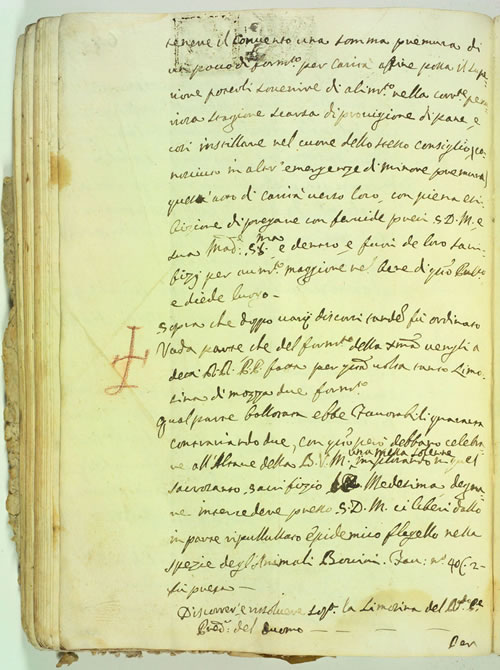 tenere il Convento una somma premura di
un poco di form.to per carità affine possa il Supe
riore poterli sovenire di alim.to nella corr.te pen
riosa stagione scarsa di provigione di pane, e
così instillare nel cuore dello stesso Consiglio
in altr' emergenze di minore premura
quest' atto di carità verso loro, con piena esi
bizione di pregare con fervide preci S. D. M. e
sua Mad.e SS.ma e dentro, e fuori de loro Sacri
fizj per aum.to maggiore nel bene di q.to Pub.co
e diede luogo -
Sopra che doppo varij discorsi fu ordinato
Vada parte che del form.to della veng li a
detti RR. PP. fatta per q.ta volta tanto Limo
sina di mozza due form.to
Qual parte ballotata ebbe favorabili quaranta
contrarie due, con q.to però debbano celebra
re all'Altare della B. V. M. una messa solenne
Sacrosanto Sacrifizio Medesima degna
re intercedere presso S. D. M. ci liberi dallo
in parte ripullullato Epidemico flagello nella
spezie degl'Animali Bovini. Fav: n.o 40 C. 2
fu presa -
Discorrer e risolvere sop.a la Limosina del
Pred.e del Duomo -
Per